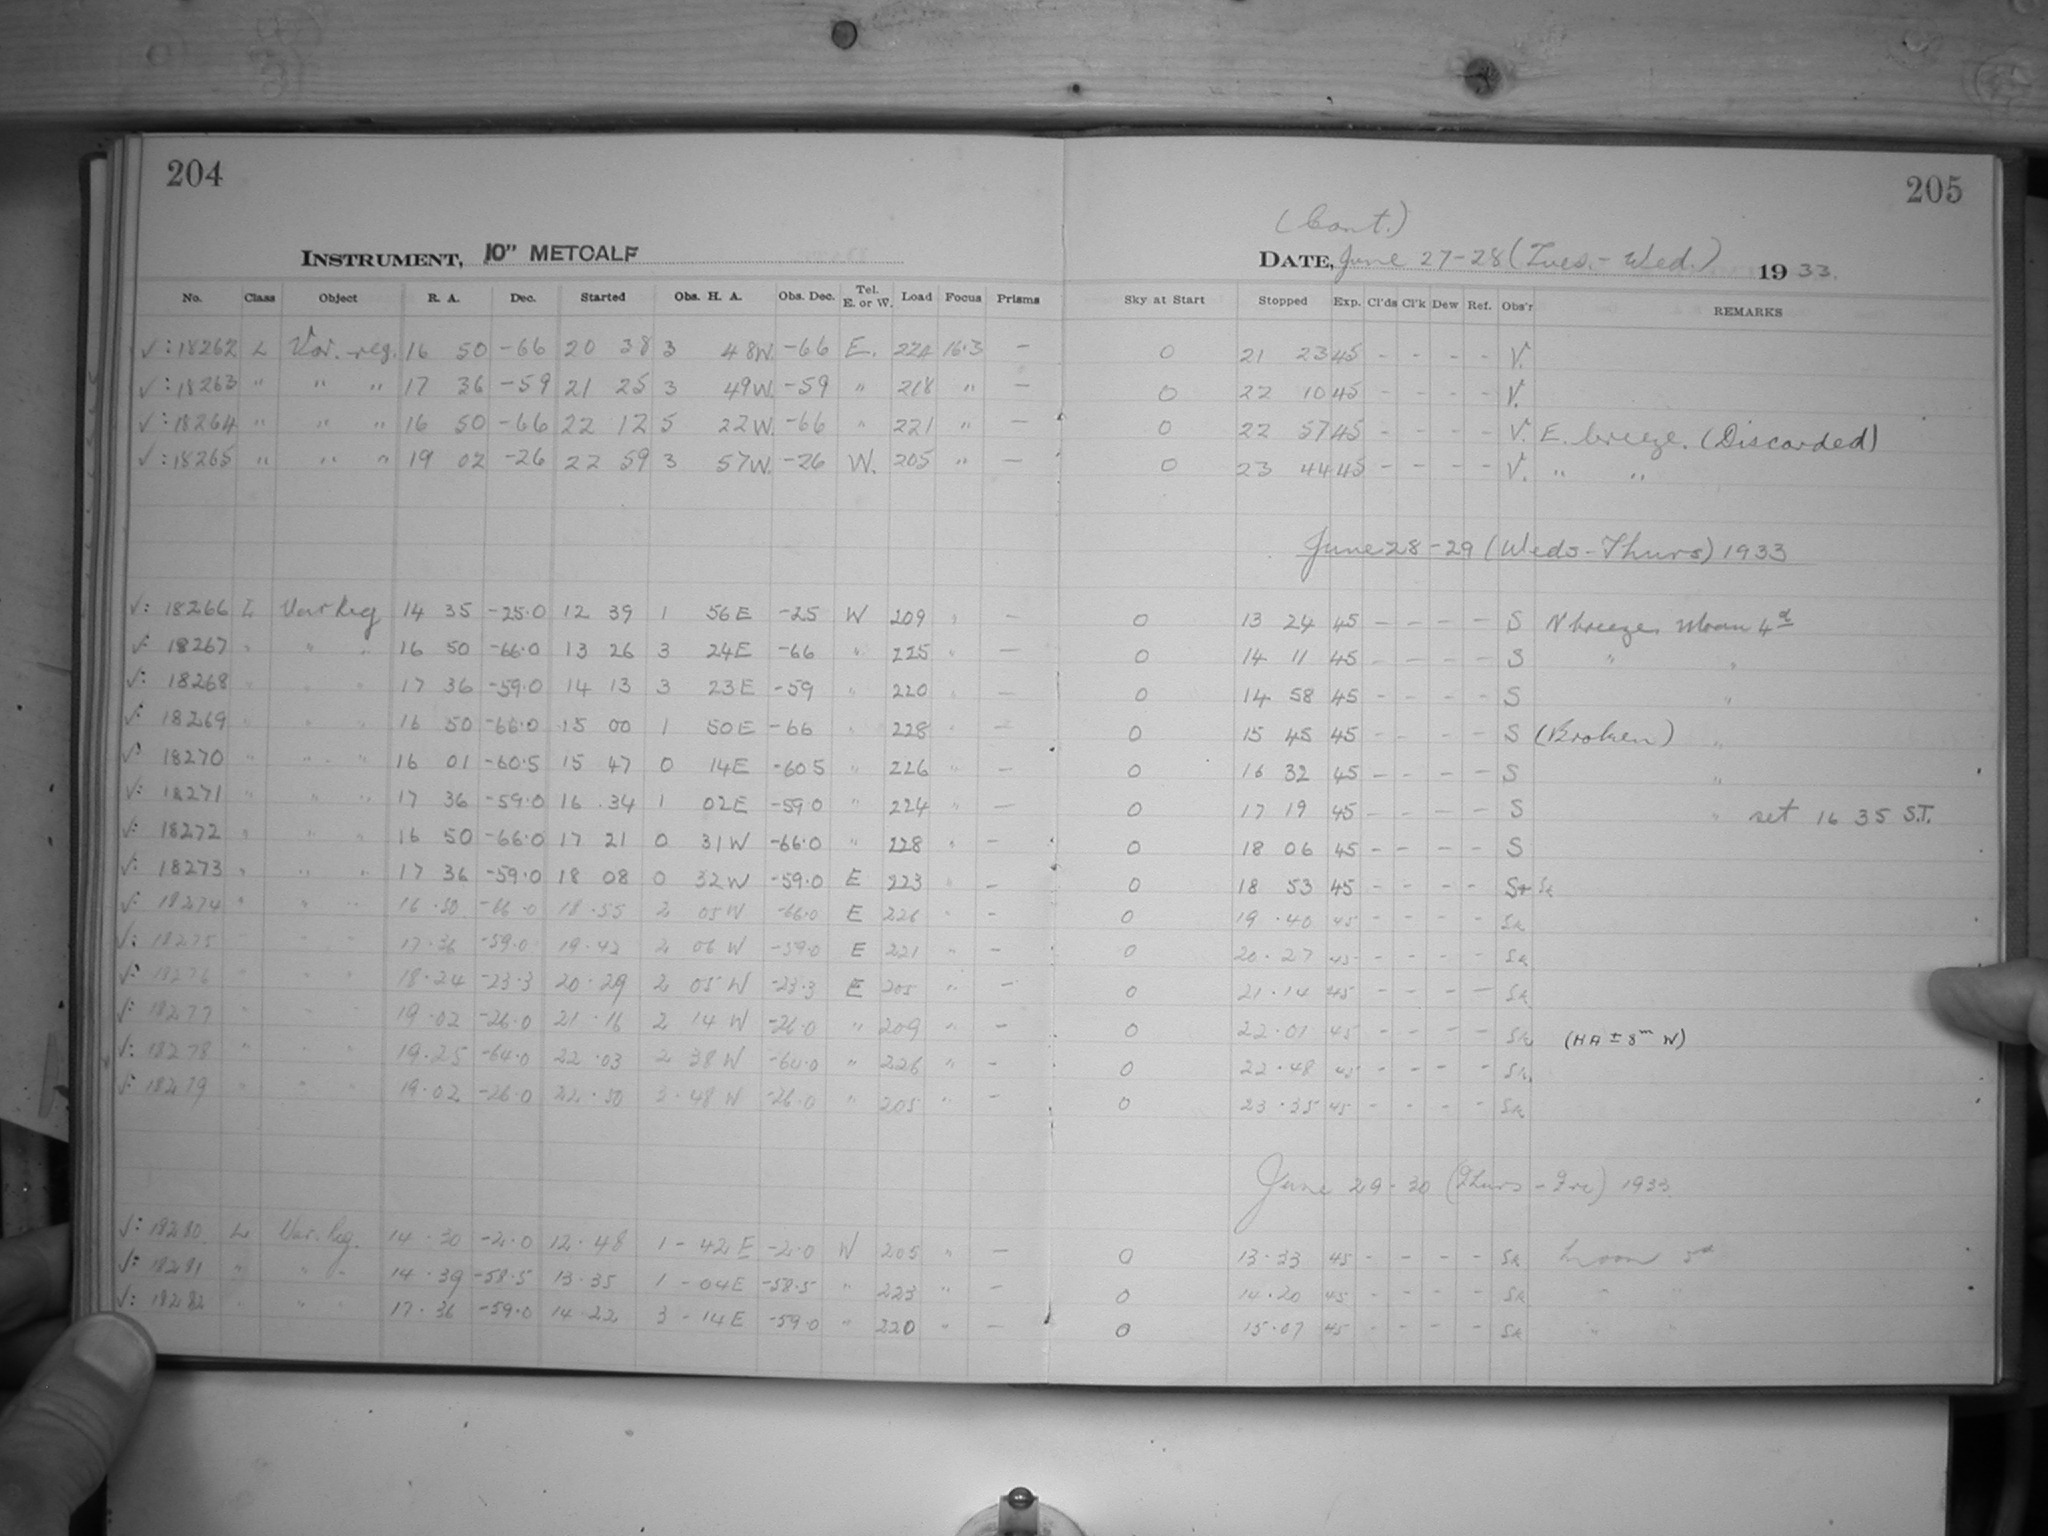 204
205
(Cont.)
INSTRUMENT, 10" METCALF
DATE, June 27-28 (Tues.- Wed.) 1933.
No. Class Object R. A. Dec. Started Obs. H. A. Obs. Dec. Tel. E. or W. Load Focus Prisms Sky at Start Stopped Exp. Cl'ds Cl'k Dew Ref. Obs'r REMARKS
√: 18262 L Var. reg. 16 50 -66 20 38 3 48W. -66 E. 16.3 – 0 21 23 45 - - - - V.
√: 18263 " " " 17 36 -59 21 25 3 49W. -59 " 218 " – 0 22 10 45 - - - - V.
√: 18264 " " " 16 50 -66 22 12 5 22W. -66 " 221 " – 0 22 57 45 - - - - V. E. breeze. (Discarded)
√: 18265 " " " 19 02 -26 22 59 3 57W. -26 W. 205 " – 0 23 44 45 - - - - V. " "
June 28-29 (Weds-Thurs) 1933
√: 18266 L Var Reg 14 35 -25.0 12 39 1 56E -25 W 209 " – 0 13 24 45 - - - - S N breeze Moon 4d
√: 18267 " " " 16 50 -66.0 13 26 3 24E -66 " 225 " – 0 14 11 45 - - - - S " "
√: 18268 " " " 17 36 -59.0 14 13 3 23E -59 " 220 " – 0 14 58 45 - - - - S "
√: 18269 " " " 16 50 -66.0 15 00 1 50E -66 " 228 " – 0 15 45 45 - - - - S (Broken) "
√: 18270 " " " 16 01 -60.5 15 47 0 14E -60.5 " 226 " – 0 16 32 45 - - - - S "
√: 18271 " " " 17 36 -59.0 16 34 1 02E -59.0 " 224 " – 0 17 19 45 - - - - S " set 16 35 S.T.
√: 18272 " " " 16 50 -66.0 17 21 0 31W -66.0 " 228 " – 0 18 06 45 - - - - S
√: 18273 " " " 17 36 -59.0 18 08 0 32W -59.0 E 223 " – 0 18 53 45 - - - - S+ Sk
√: 18274 " " " 16.50 -66.0 18.55 2 05W -66.0 E 226 " – 0 19.40 45 - - - - Sk
√: 18275 " " " 17.36 -59.0 19.42 2 06W -59.0 E 221 " – 0 20.27 45 - - - - Sk
√: 18276 " " " 18.24 -23.3 20.29 2 05W -23.3 E 205 " – 0 21.14 45 - - - - Sk
√: 18277 " " " 19.02 -26.0 21.16 2 14W -26.0 " 209 " – 0 22.01 45 - - - - Sk (HA ± 8m W)
√: 18278 " " " 19.25 -64.0 22.03 2 38W -64.0 " 226 " – 0 22.48 45 - - - - Sk.
√: 18279 " " " 19.02 -26.0 22.50 3.48W -26.0 " 205 " – 0 23.35 45 - - - - Sk
June 29-30 (Thurs-Fri) 1933
√: 18280 L Var. Reg. 14.30 -2.0 12.48 1-42E -2.0 W 205 " – 0 13.33 45 - - - - Sk Moon 5d
√: 18281 " " " 14.39 -58.5 13.35 1-04E -58.5 " 223 " – 0 14.20 45 - - - - Sk " "
√: 18282 " " " 17.36 -59.0 14.22 3-14E -59.0 " 220 " – 0 15.07 45 - - - - Sk " "